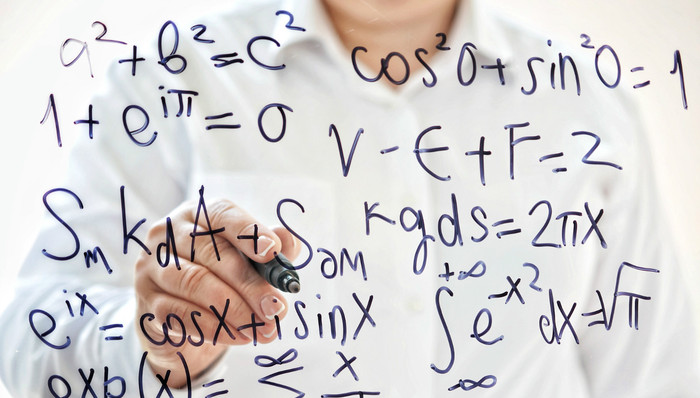 a² + b² = c²
cos²θ + sin²θ = 1
1 + e^{iπ} = 0
V - E + F = 2
S_m k dA + S_∂M kg ds = 2πX
e^{ix} = cosx + i sinx
∫_{-∞}^{+∞} e^{-x²} dx = √π
exp(x) = Σ^∞ x